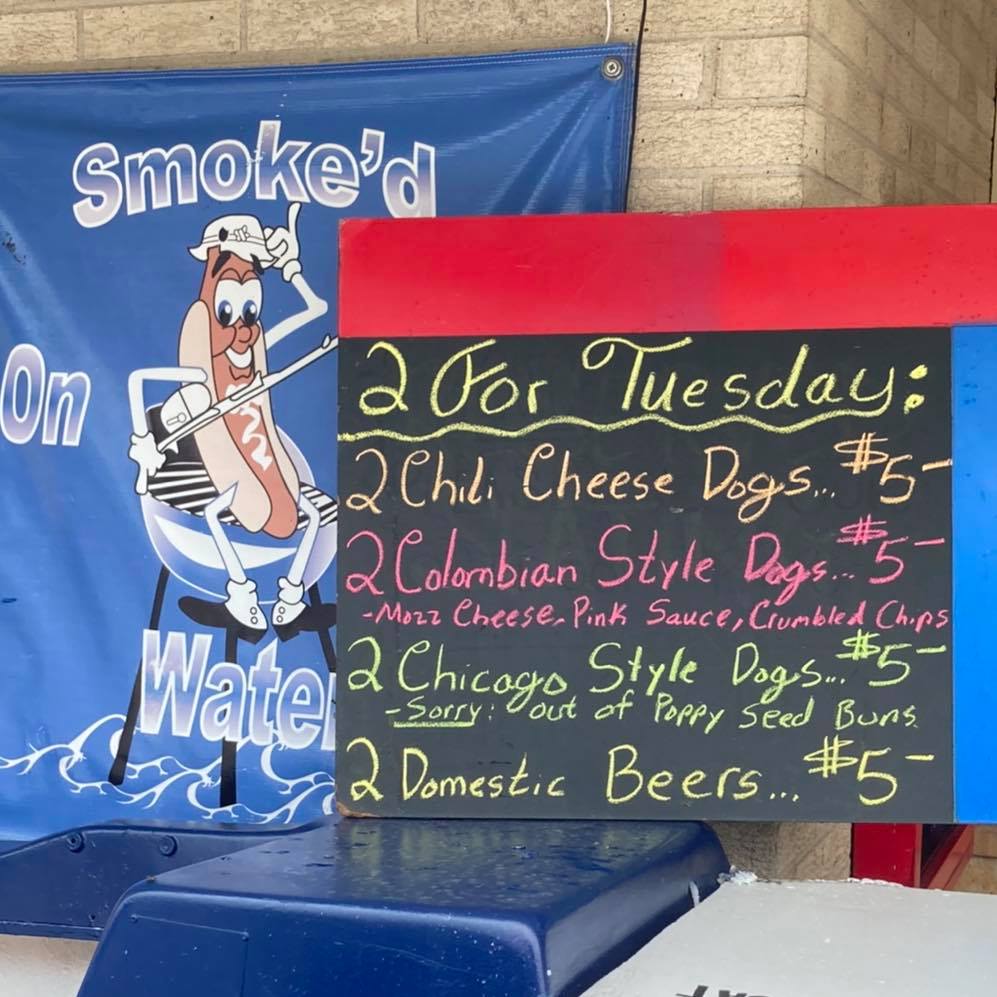 Smoke'd
On
Water
2 For Tuesday:
2 Chili Cheese Dogs... $5-
2 Colombian Style Dogs... $5-
-Mozz Cheese, Pink Sauce, Crumbled Chips
2 Chicago Style Dogs... $5-
-Sorry: out of Poppy Seed Buns
2 Domestic Beers... $5-